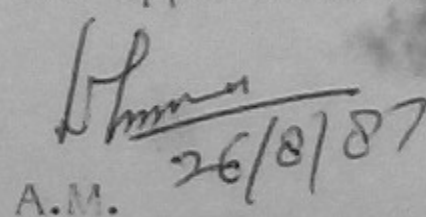 26/8/87
A.M.